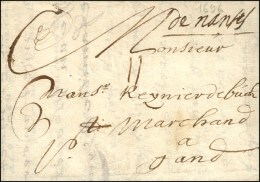 de nantes
Monsieur
11
Mons.r Reynier de buck
Marchand
a
Gand